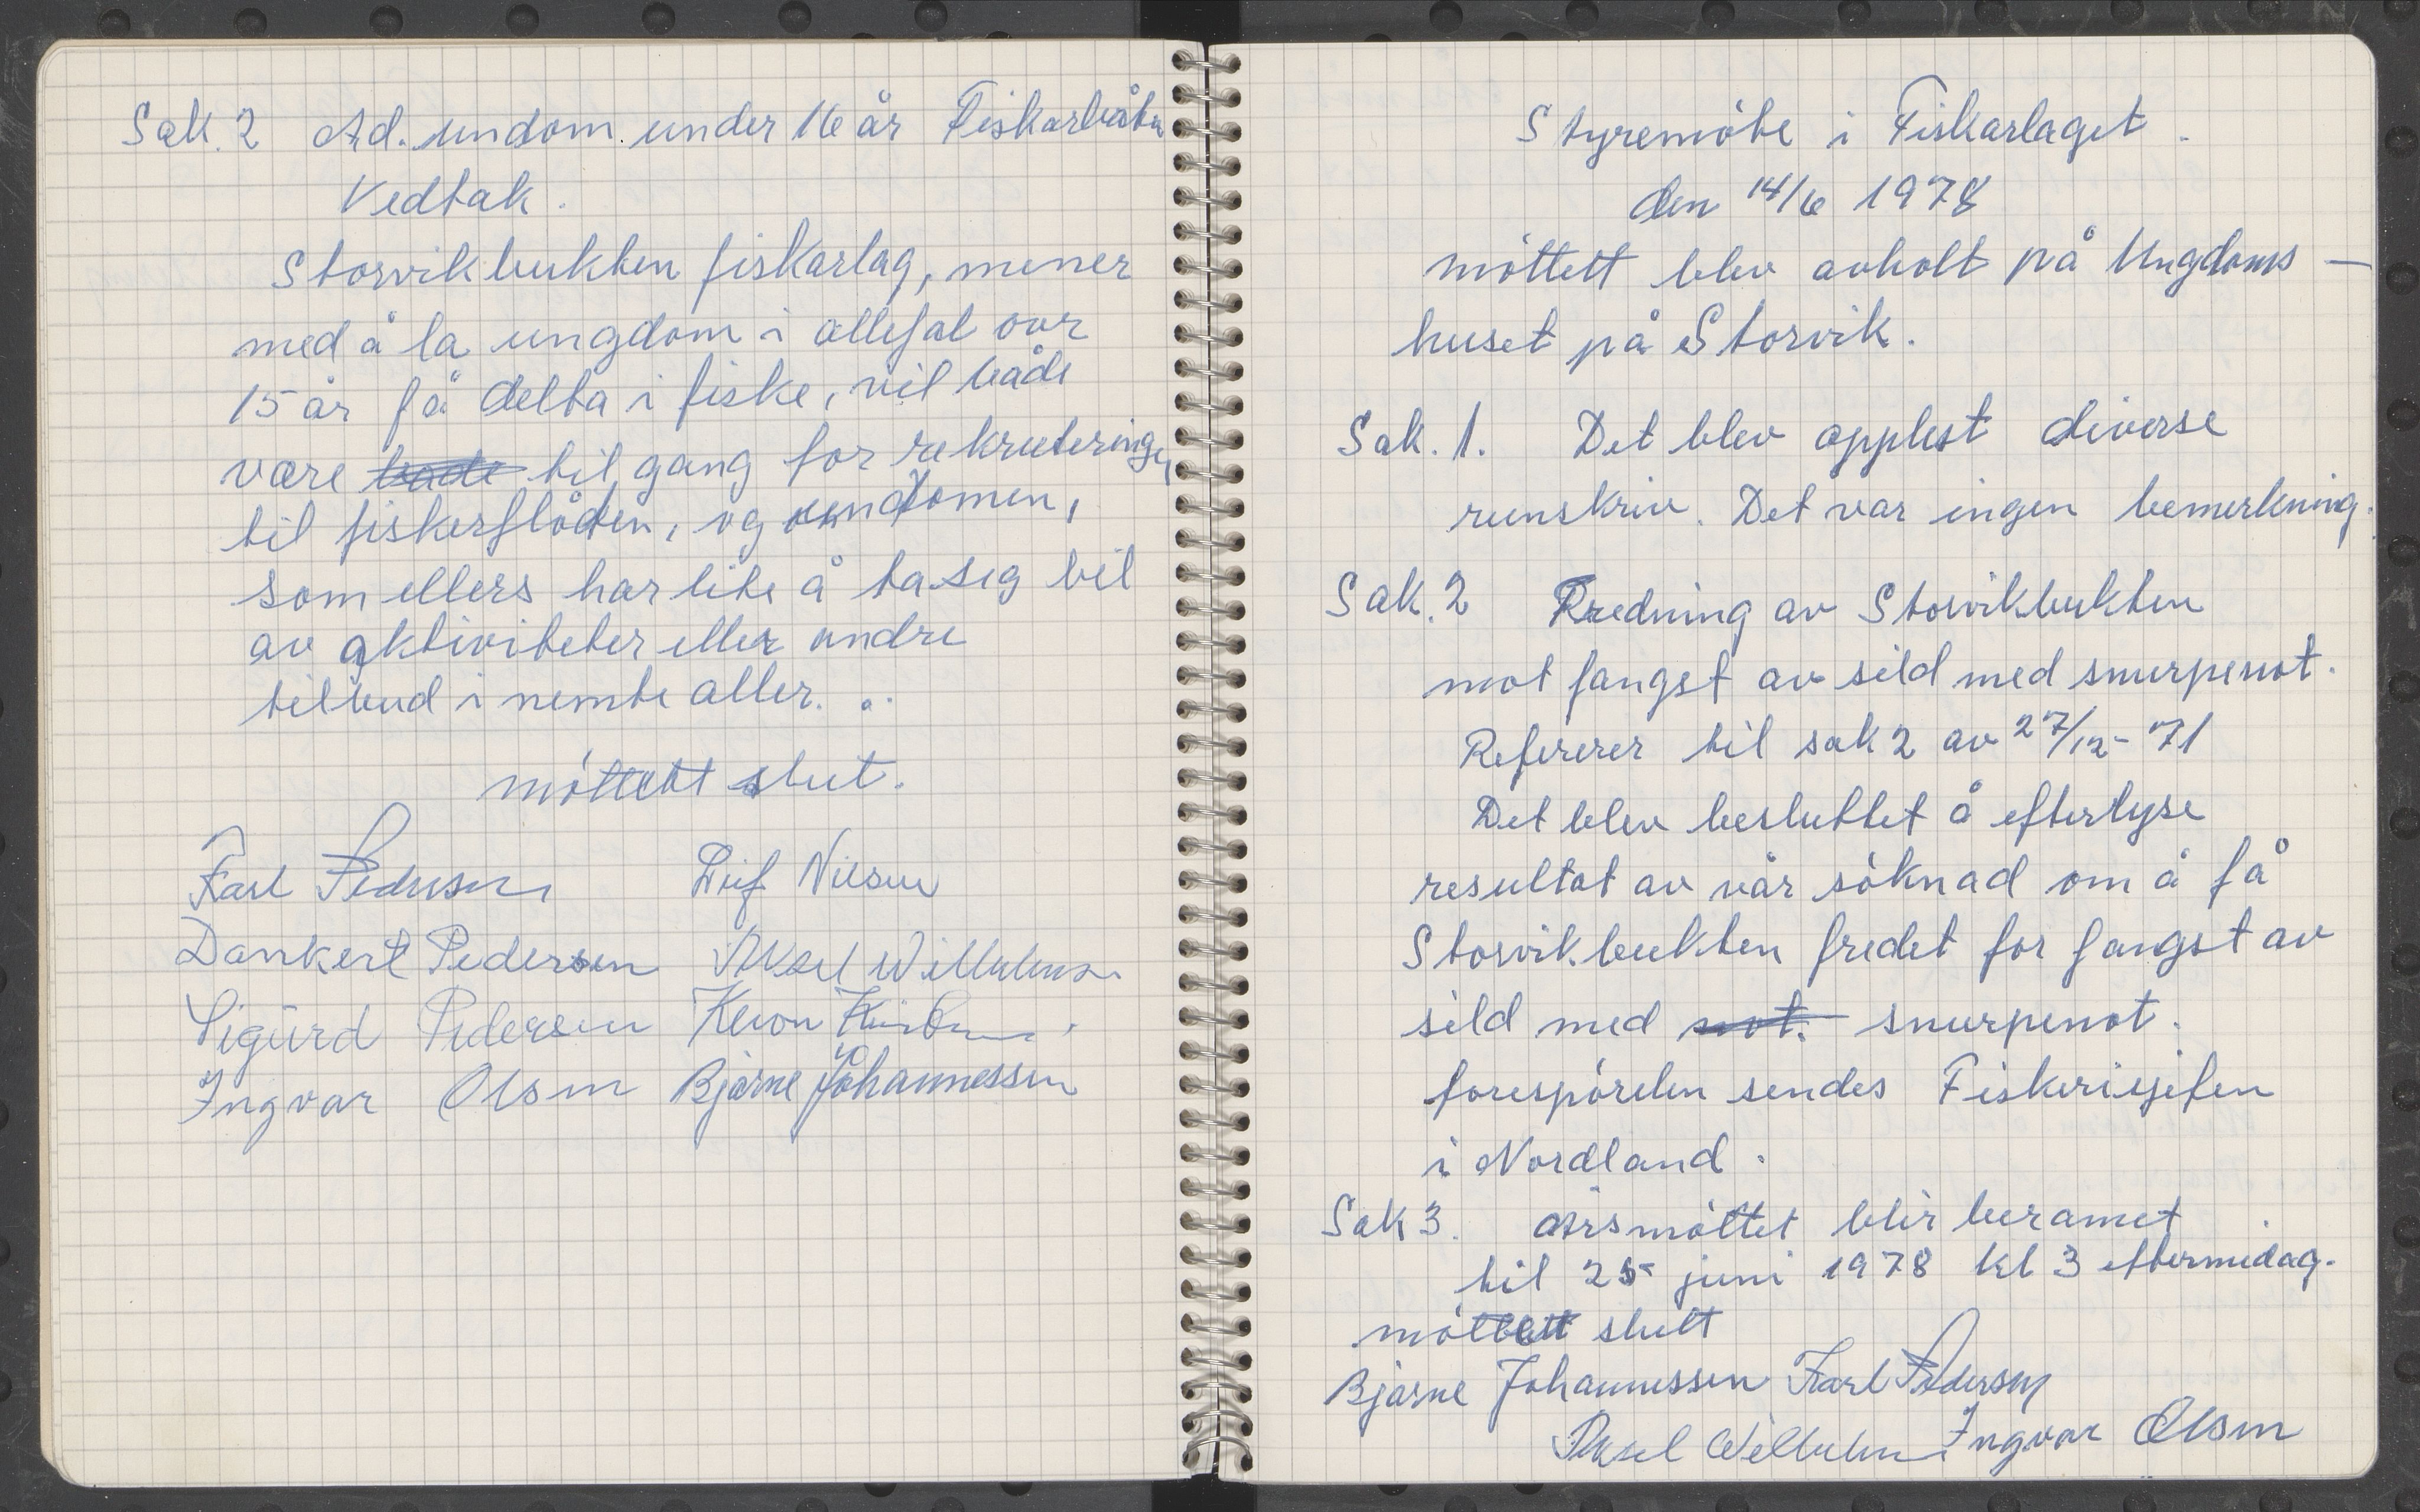 Sak. 2 Ad. undom. under 16 år Fiskarbåter
Vedtak.
Storvikbukten fiskarlag, mener
med å la ungdom i allefal over
15 år få delta i fiske, vil både
være både til gang for rekruteringen
til fiskerflåden, og undomen,
som ellers har lite å ta sig til
av aktiviteter eller andre
tilbud i nemte aller.
möttett slut.
Karl Pedersen Leif Nilsen
Dankert Pedersen Aksel Willumsen
Sigurd Pedersen
Ingvar Olsen Bjarne Johannessen
Styremöte i Fiskarlaget.
den 14/6 1978
möttett blev avholt på Ungdoms-
huset på Storvik.
Sak. 1. Det blev opplest diverse
runskriv. Det var ingen bemerkning.
Sak. 2 Fredning av Storvikbukten
mot fangst av sild med snurpenot.
Refererer til sak 2 av 27/12-71
Det blev besluttet å efterlyse
resultat av vår söknad om å få
Storvikbukten fredet for fangst av
sild med not. snurpenot.
forespörelen sendes Fiskerisjefen
i Nordland.
Sak 3. Årsmöttet blir beramet
til 25 juni 1978 kl 3 eftermidag.
möttett slutt
Bjarne Johannessen Karl Pedersen
Aksel Willumsen Ingvar Olsen